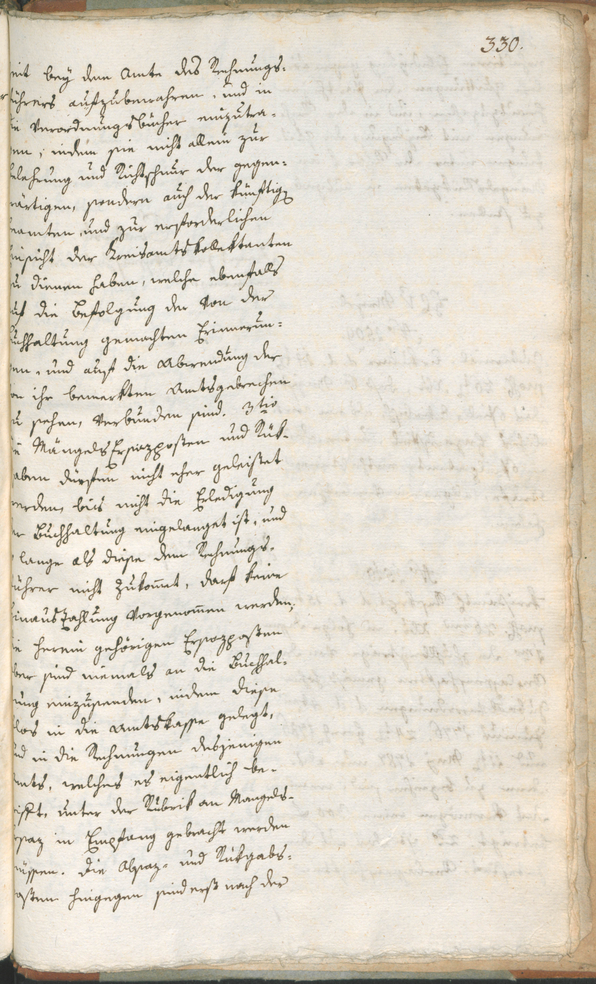 330.
eit bey dem Amte des Rechnungs-
führers aufzubewahren, und in
die Verordnungsbücher einzutra-
en, indem sie nicht allein zur
elehrung und Richtschnur der gegen-
wärtigen, sondern auch der künftigen
eamten, und zur erforderlichen
insicht der Kreisamtskollektanten
zu dienen haben, welche ebenfalls
auf die Befolgung der von der
uchhaltung gemachten Erinnerun-
en, und auf die Abwendung der
on ihr bemerkten Amtsgebrechen
zu sehen, verbunden sind. 3tio
ie MängelsErsazposten und Rük-
aben dürften nicht eher geleistet
werden, bis nicht die Erledigung
er Buchhaltung eingelanget ist, und
lange als diese dem Rechnungs-
führer nicht zukom̄t, darf keine
HinausZahlung vorgenom̄en werden.
ie herein gehörigen Ersazposten
ber sind niemals an die Buchhal-
ung einzusenden, indem diese
blos in die Amtskasse gelegt,
nd in die Rechnungen desjenigen
mts, welches es eigentlich be-
ifft, unter der Rubrik an Mängels-
rsaz in Empfang gebracht werden
müssen. Die Absaz- und Rükgabs-
osten hingegen sind erst nach der